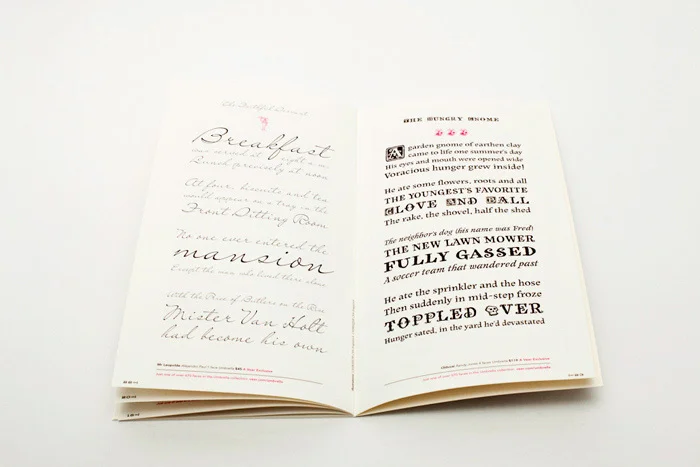 The Dutiful Servant
Breakfast
was served at eight a.m.
Lunch precisely at noon
At four, biscuits and tea
would appear on a tray in the
Front Sitting Room
No one ever entered the
mansion
Except the man who lived there alone
With the Rise of Butlers on the Rise
Mister Van Holt
had become his own
THE HUNGRY GNOME
A garden gnome of earthen clay
came to life one summer's day
His eyes and mouth were opened wide
Voracious hunger grew inside!
He ate some flowers, roots and all
THE YOUNGEST'S FAVORITE
GLOVE AND BALL
The rake, the shovel, half the shed
The neighbor's dog (his name was Fred)
THE NEW LAWN MOWER
FULLY GASSED
A soccer team that wandered past
He ate the sprinkler and the hose
Then suddenly in mid-step froze
TOPPLED OVER
Hunger sated, in the yard he'd devastated